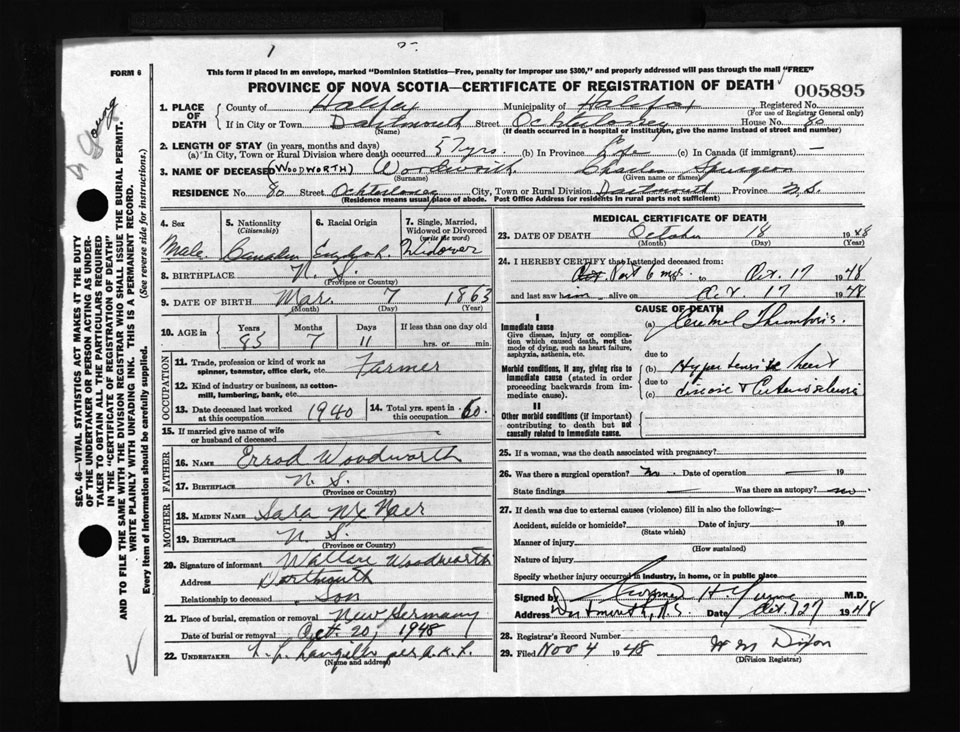 FORM 6
This form if placed in an envelope, marked "Dominion Statistics—Free, penalty for improper use $300," and properly addressed will pass through the mail "FREE"
PROVINCE OF NOVA SCOTIA—CERTIFICATE OF REGISTRATION OF DEATH
005895
1. PLACE OF DEATH
County of Halifax Municipality of Halifax Registered No.
(For use of Registrar General only)
If in City or Town Dartmouth Street Ochterloney House No. 80
(Name) (If death occurred in a hospital or institution, give the name instead of street and number)
2. LENGTH OF STAY (in years, months and days)
(a) In City, Town or Rural Division where death occurred yrs. (b) In Province Life (c) In Canada (if immigrant) —
3. NAME OF DECEASED (WOODWORTH) Woodworth Charles Spurgeon
(Surname) (Given name or names)
RESIDENCE No. 80 Street Ochterloney City, Town or Rural Division Dartmouth Province N.S.
(Residence means usual place of abode. Post Office Address for residents in rural parts not sufficient)
4. Sex
Male
5. Nationality
(Citizenship)
Canadian
6. Racial Origin
English
7. Single, Married, Widowed or Divorced
(write the word)
Widower
8. BIRTHPLACE N. S.
(Province or Country)
9. DATE OF BIRTH Mar. 7 1863
(Month) (Day) (Year)
10. AGE in Years Months Days If less than one day old
85 7 11 hrs. or min.
OCCUPATION
11. Trade, profession or kind of work as spinner, teamster, office clerk, etc. Farmer
12. Kind of industry or business, as cotton-mill, lumbering, bank, etc.
13. Date deceased last worked at this occupation 1940
14. Total yrs. spent in this occupation 60
15. If married give name of wife or husband of deceased
FATHER
16. NAME Errod Woodworth
17. BIRTHPLACE N. S.
(Province or Country)
MOTHER
18. MAIDEN NAME Sara
19. BIRTHPLACE N. S.
(Province or Country)
20. Signature of informant Wallace Woodworth
Address Dartmouth
Relationship to deceased Son
21. Place of burial, cremation or removal New Germany
Date of burial or removal Oct. 20, 1948
22. UNDERTAKER
(Name and address)
MEDICAL CERTIFICATE OF DEATH
23. DATE OF DEATH October 18 1948
(Month) (Day) (Year)
24. I HEREBY CERTIFY that I attended deceased from:
Past 6 mos. to Oct. 17 1948
and last saw him alive on Oct. 17 1948
CAUSE OF DEATH
I
Immediate cause
Give disease, injury or complication which caused death, not the mode of dying, such as heart failure, asphyxia, asthenia, etc.
(a) Cerebral Thrombosis.
due to
Morbid conditions, if any, giving rise to immediate cause (stated in order proceeding backwards from immediate cause).
(b) Hypertensive heart
due to
(c) disease & Arteriosclerosis
II
Other morbid conditions (if important) contributing to death but not causally related to immediate cause.
25. If a woman, was the death associated with pregnancy?
26. Was there a surgical operation? no. Date of operation — 19
State findings — Was there an autopsy? no.
27. If death was due to external causes (violence) fill in also the following:—
Accident, suicide or homicide? Date of injury 19
(State which)
Manner of injury
(How sustained)
Nature of injury
Specify whether injury occurred in industry, in home, or in public place
Signed by M.D.
Address Dartmouth, N.S. Date Oct. 27 1948
28. Registrar's Record Number
29. Filed Nov 4 1948 W M Dixon
(Division Registrar)
SEC. 46—VITAL STATISTICS ACT MAKES IT THE DUTY
OF THE UNDERTAKER OR PERSON ACTING AS UNDER-
TAKER TO OBTAIN ALL THE PARTICULARS REQUIRED
IN THE "CERTIFICATE OF REGISTRATION OF DEATH"
AND TO FILE THE SAME WITH THE DIVISION REGISTRAR WHO SHALL ISSUE THE BURIAL PERMIT.
WRITE PLAINLY WITH UNFADING INK. THIS IS A PERMANENT RECORD.
Every item of information should be carefully supplied. (See reverse side for instructions.)